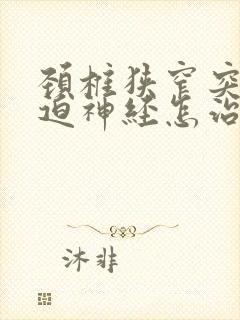 颈椎狭窄突
迫神经怎治
沐非